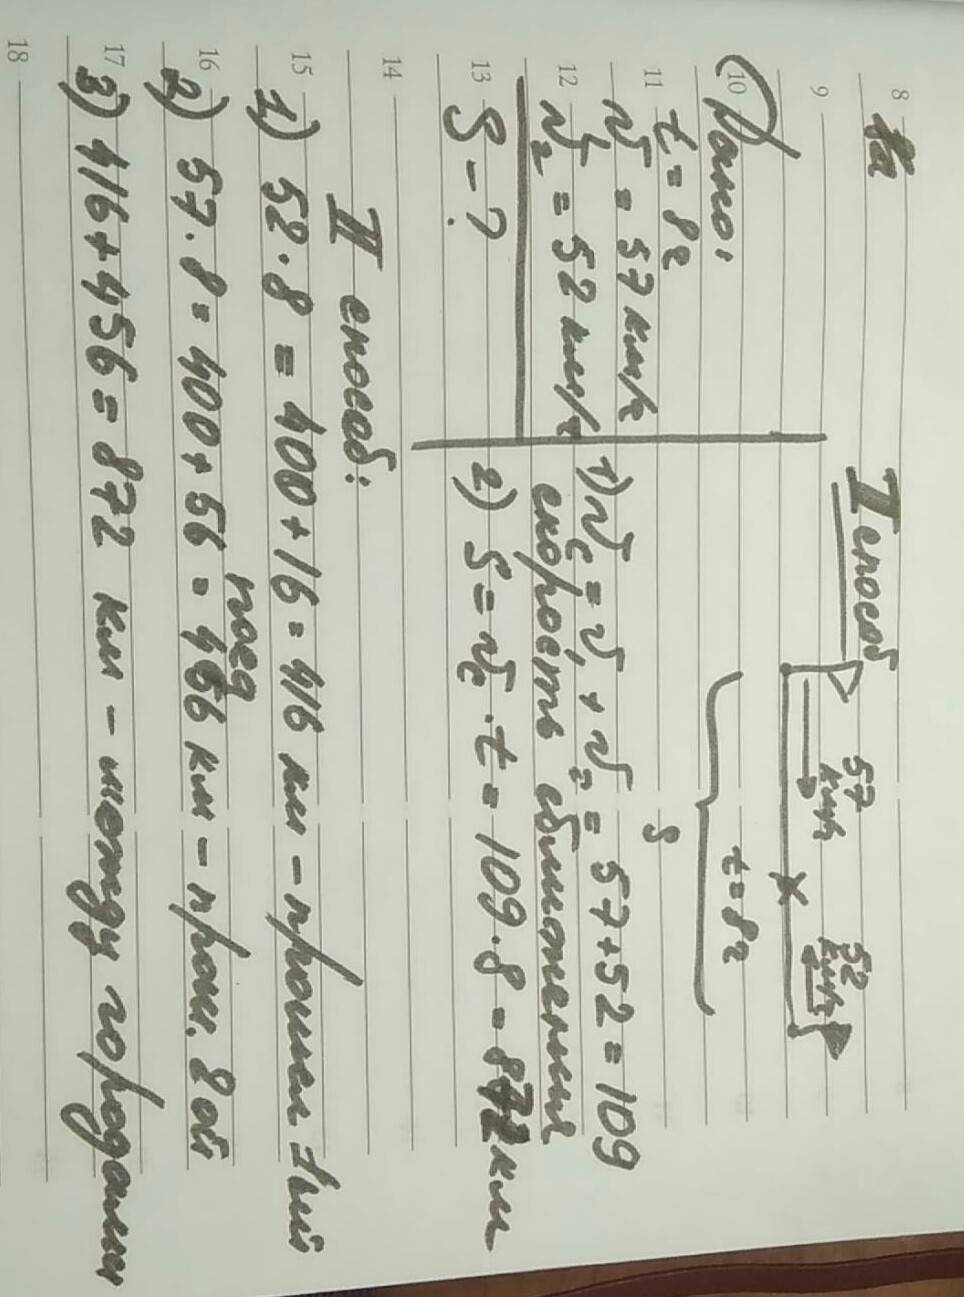 8
9
10
11
12
13
14
15
16
17
18
На
Дано:
t = 8ч
v₁ = 57 км/ч
v₂ = 52 км/ч
S - ?
I способ
57 км/ч
52 км/ч
t = 8ч
S
1) vс = v₁ + v₂ = 57 + 52 = 109
скорость сближения
2) S = vс · t = 109 · 8 = 872 км
II способ:
1) 52 · 8 = 400 + 16 = 416 км - прошел 1ый
поезд
2) 57 · 8 = 400 + 56 = 456 км - прош. 2ой
3) 416 + 456 = 872 км - между городами